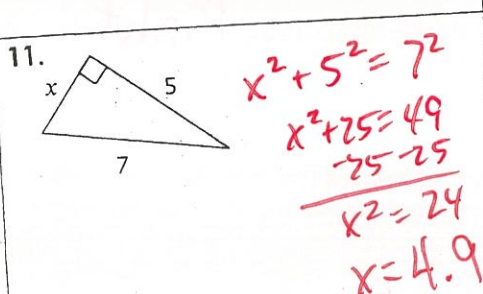 11.
x
5
7
x² + 5² = 7²
x² + 25 = 49
-25 -25
x² = 24
x = 4.9